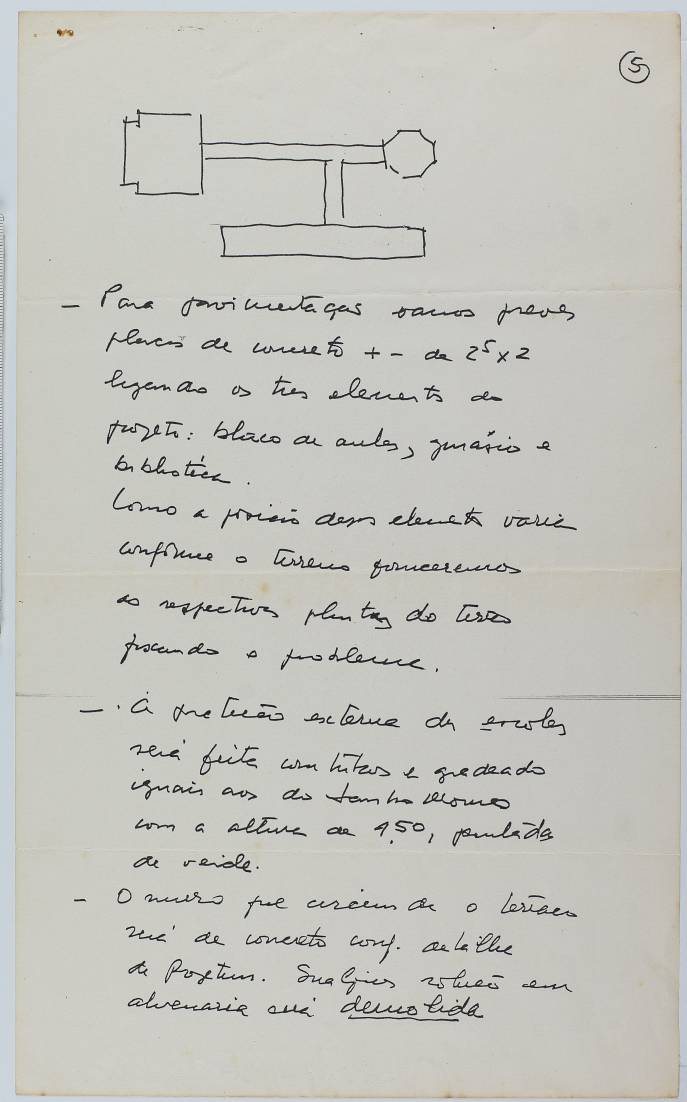 5
– Para pavimentação vamos prever
placas de concreto + - de 2⁵ x 2
ligando os tres elementos do
projeto: bloco de aulas, ginásio e
biblioteca.
Como a posição desses elementos varia
conforme o terreno forneceremos
as respectivas plantas do terreo
fixando o problema.
– . A proteção externa das escolas
será feita com tubos e gradeado
iguais aos do
com a altura de 1,50, pintada
de verde.
– O muro que circunda o terreno
será de concreto conf. detalhe
de Projetum. Qualquer solução em
alvenaria será demolida